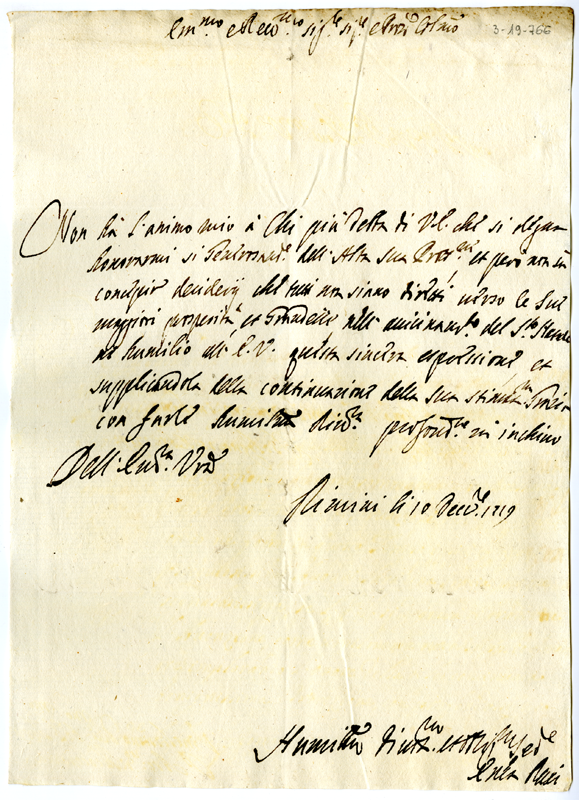 Em.mo e Rev.mo sig.e sig.e e Pron Col.mo
3-19-766
Non hà l'animo mio à Chi più detta di V.E. che si degna
honorarmi si della Alta sua Prot.ne, et però non sà
concepir desiderij che tutti non siano diretti verso le sue
maggiori prosperità, et Grandezze nell' avicinam.to del S.to Natale
ne humilio all' E.V. questa sincera espressione et
supplicandola della continuazione della sua stimat.ma
con farle humiliss.a River.a profond.te m'inchino
Dell' Em.za V.ra
Rimini li 10 Decem.re 1719
Humiliss.o Divot.mo et Oblig.mo Ser.e